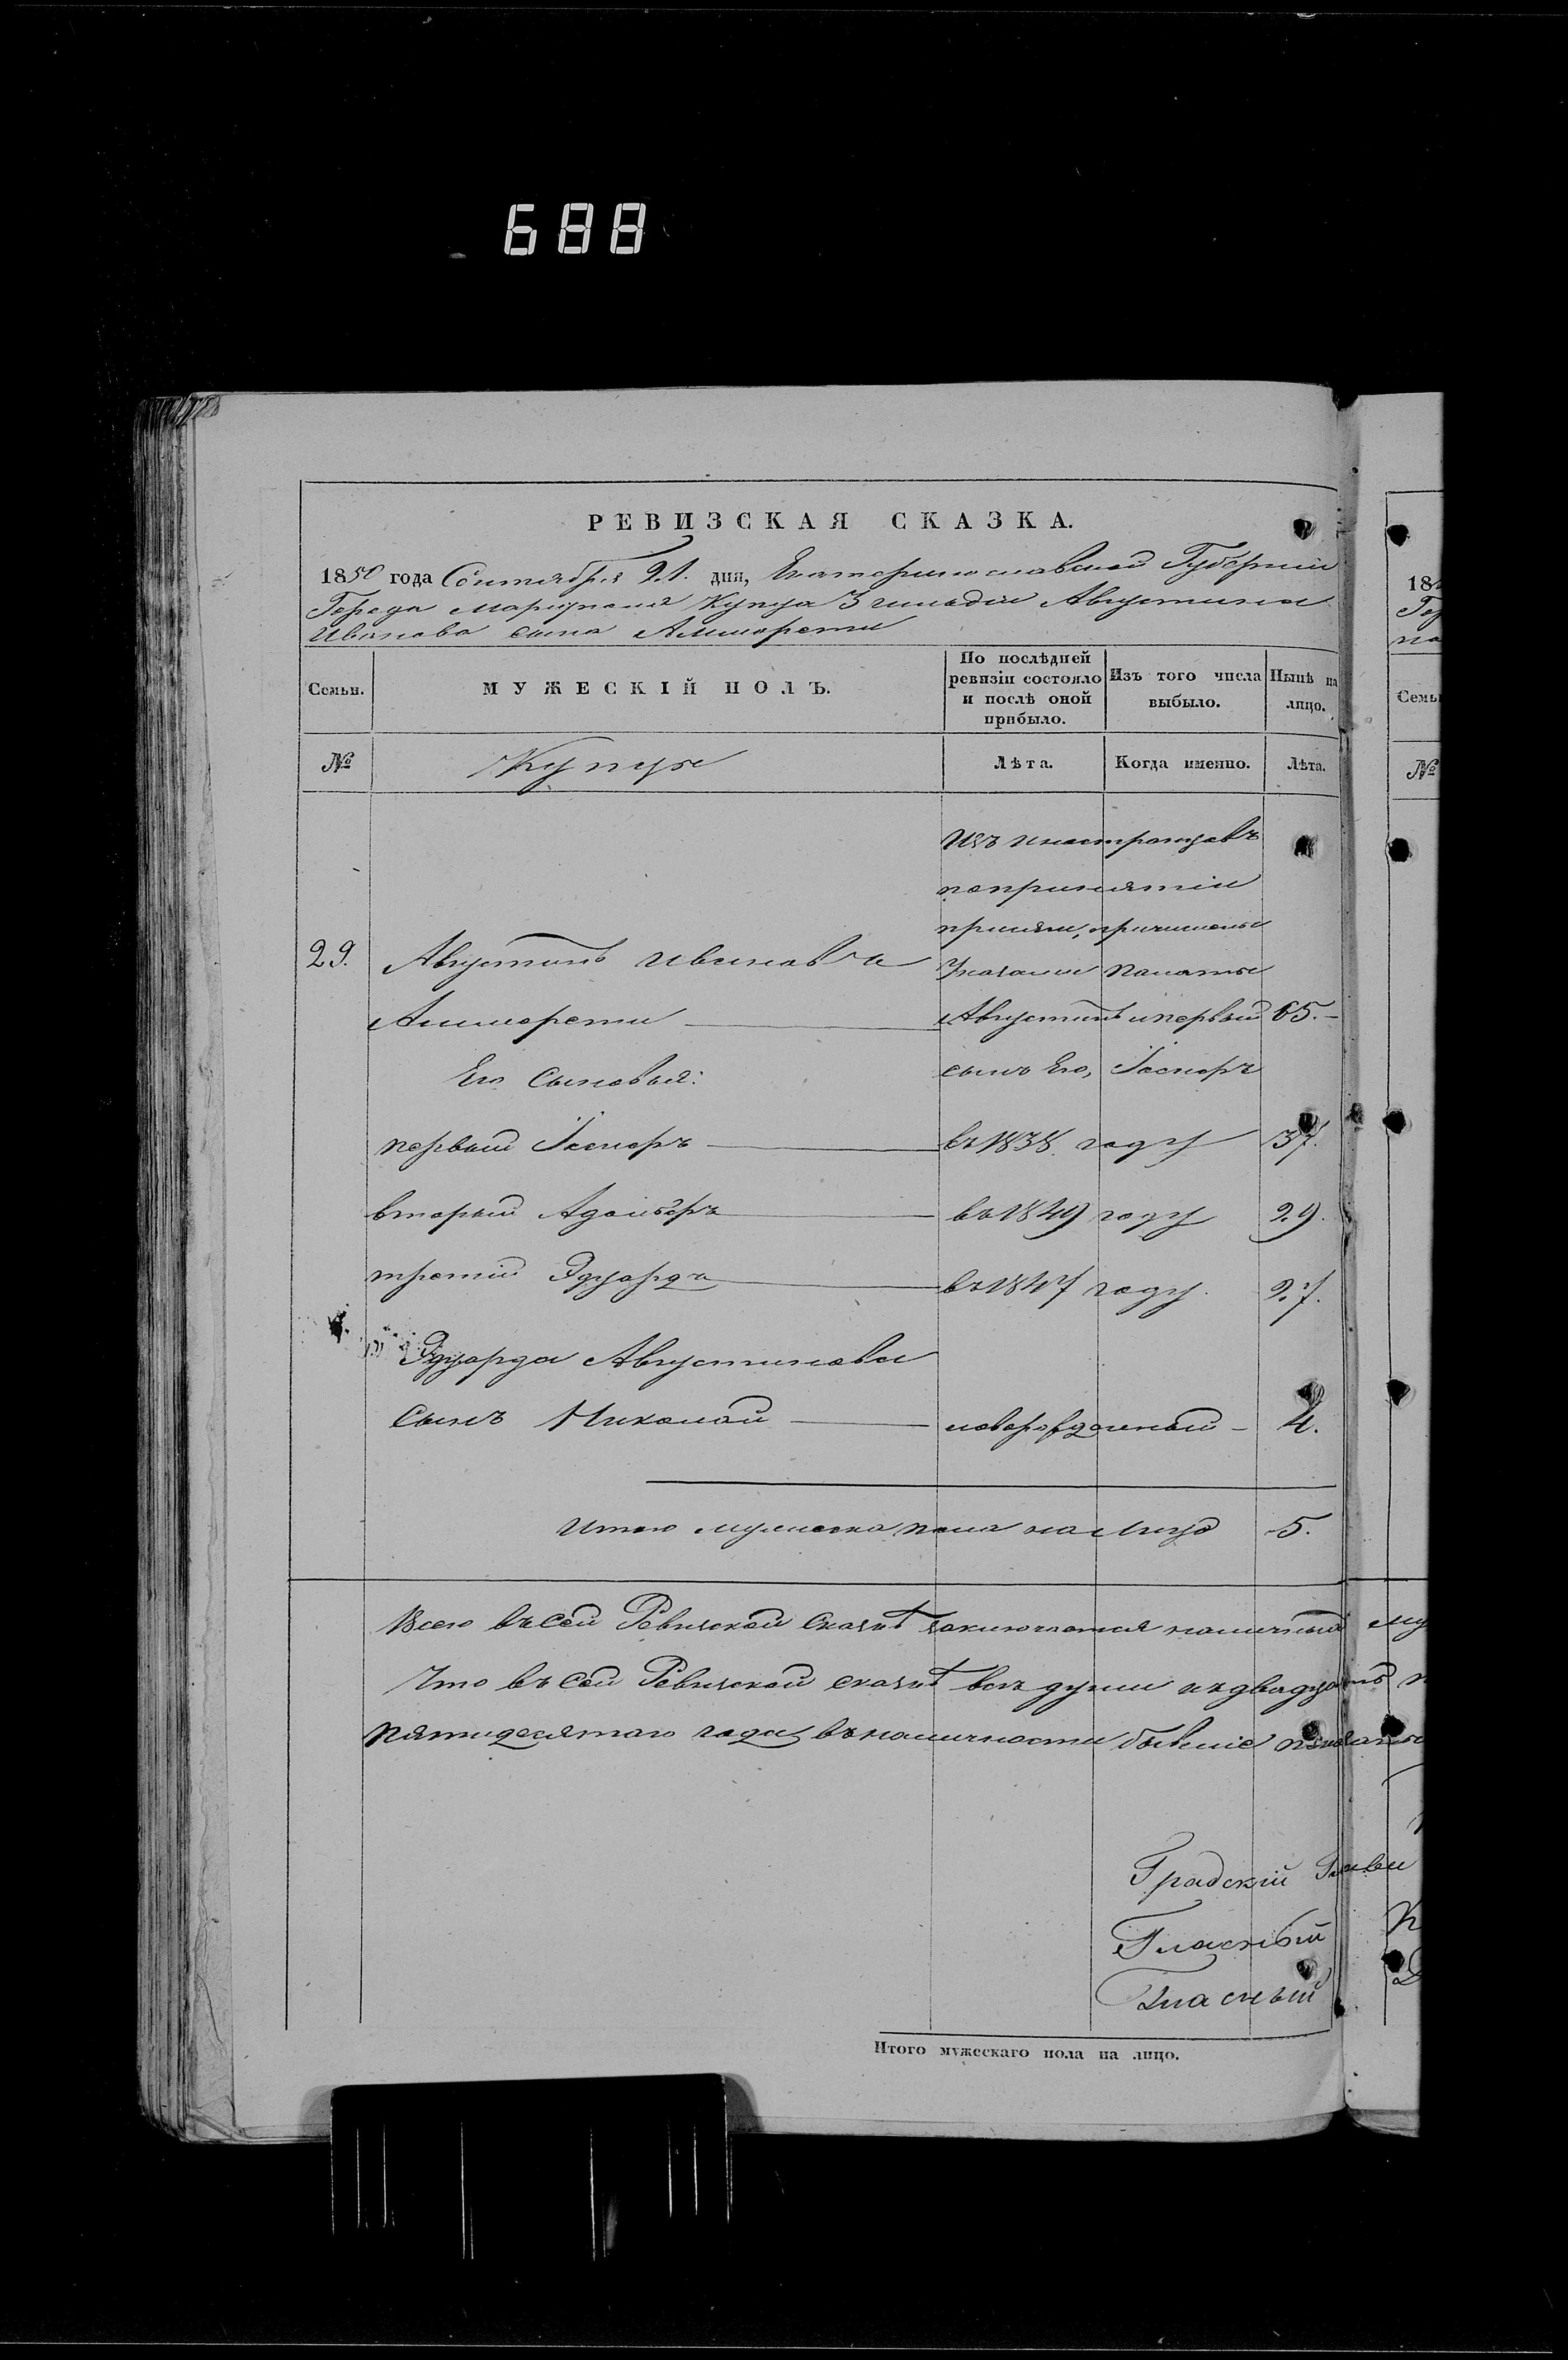 688
РЕВИЗСКАЯ СКАЗКА.
1850 года Сентября 21. дня, Екатеринославской Губерніи
Города Мариуполя Купца 3 гильдіи Августина
Иванова сына Амморети
Семьи.
МУЖЕСКІЙ ПОЛЪ.
По послѣдней ревизіи состояло и послѣ оной прибыло.
Изъ того числа выбыло.
Нынѣ на лицо.
№
Купцы
Лѣта.
Когда именно.
Лѣта.
Изъ иностранцевъ
по принятіи
присяги, причислены
29. Августинъ Ивановъ Указами Палаты
Амморети Августинъ и первый 65.
Его Сыновья: сынъ Его, Іаспоръ
первый Іаспоръ въ 1838 году 37.
вторый Адольфъ въ 1849 году 29.
третій Эдуардъ въ 1847 году. 27.
Эдуарда Августинова
Сынъ Николай новорожденный 4.
Итого мужеска пола на лицо 5.
Всего въ сей Ревизской Сказкѣ заключается наличныхъ
Что въ сей Ревизской сказкѣ всѣ души къ двадцать
пятидесятаго года въ наличности бывшіе показаны
Градскій
Гласный
Гласный
Итого мужескаго пола на лицо.
18
Семь
№